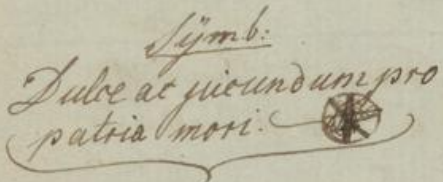 Sÿmb:
Dulce ac jucundum pro
patria mori.